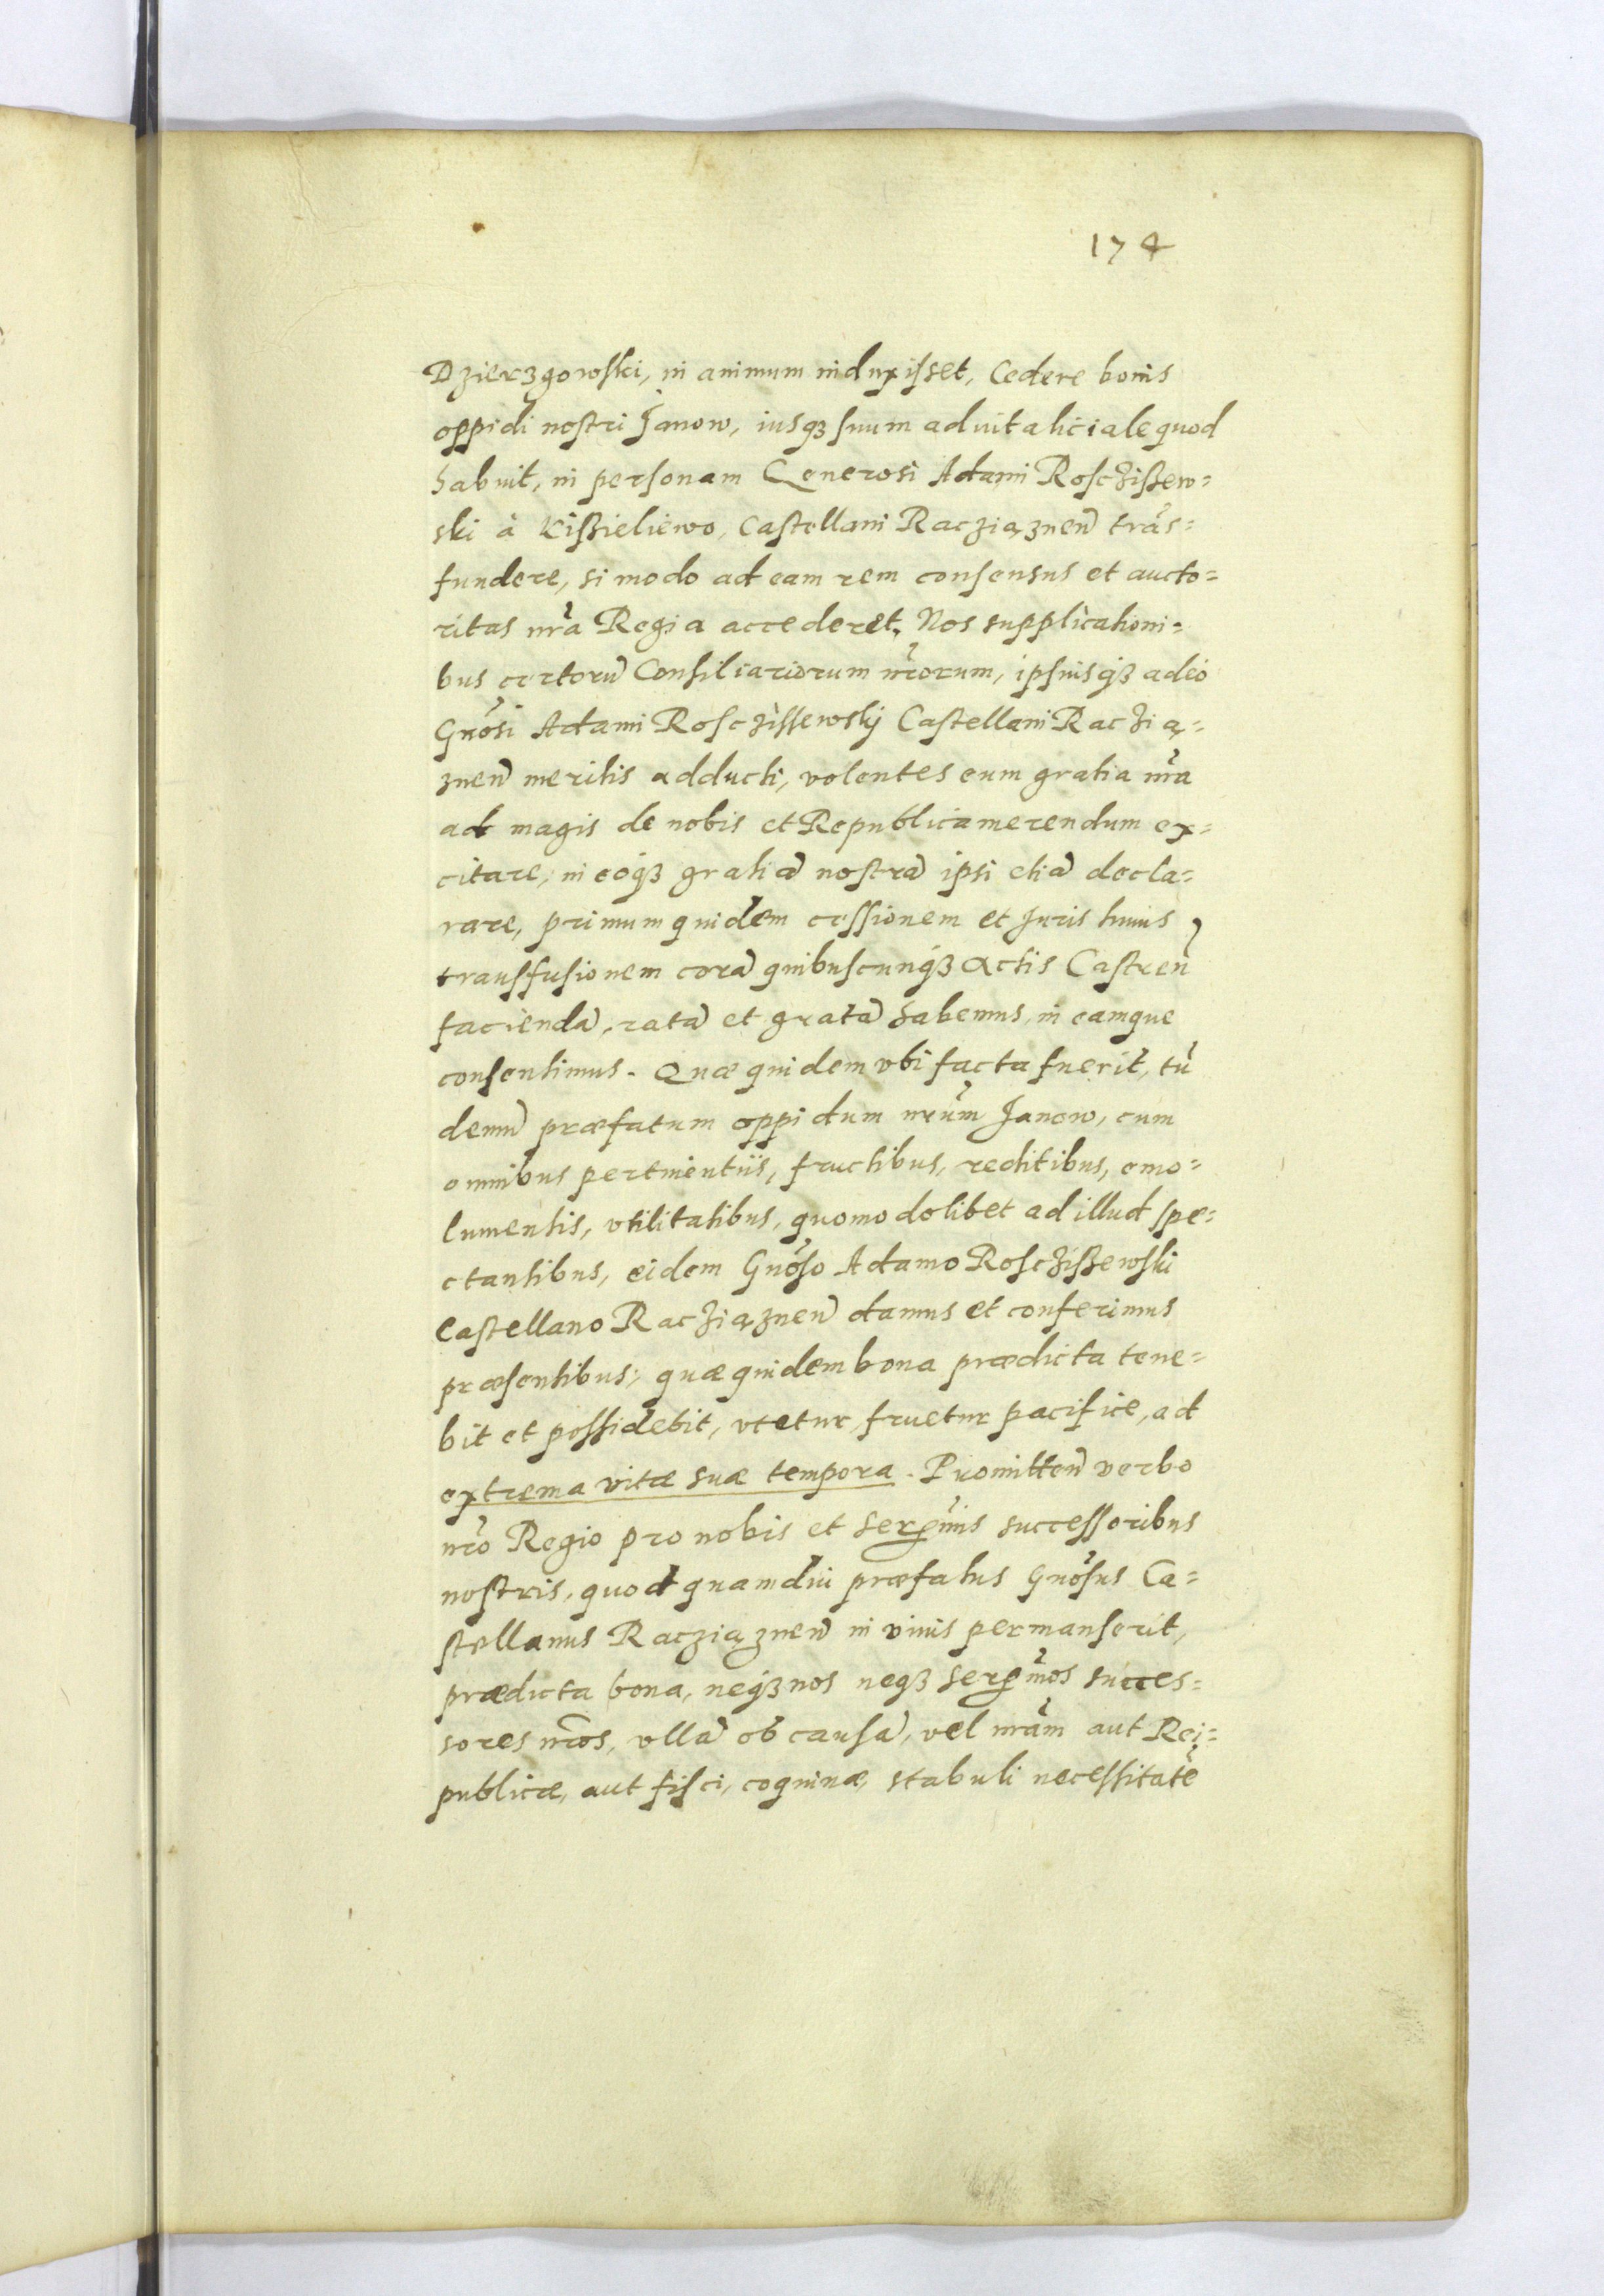 174
Dzierzgowski, in animum induxisset, Cedere bonis
oppidi nostri Janow, iusqȝ suum aduitaliciale quod
habuit, in personam Generosi Adami Roscziszew=
ski à Kiszieliewo, Castellani Racziąznen̄ trās=
fundere, si modo ad eam rem consensus et aucto=
ritas nr̄a Regia accederet. Nos supplicationi=
bus certorū Consiliariorum nr̄orum, ipsiusqȝ adeo
Gnōsi Adami Rosczissewskj Castellani Raczią=
znen̄ meritis adducti, volentes eum gratia nr̄a
ad magis de nobis et Republica merendum ex=
citare, in eoqȝ gratiā nostrā ipsi etiā decla=
rare, primum quidem cessionem et Juris huius
transfusionem corā quibuscunqȝ Actis Castren̄
faciendā, ratā et gratā habemus, in eamque
consentimus. Quæ quidem vbi facta fuerit, tū
demū præfatum oppidum nr̄um Janow, cum
omnibus pertinentiis, fructibus, reditibus, emo=
lumentis, vtilitatibus, quomodolibet ad illud spe=
ctantibus, eidem Gnōso Adamo Roscziszewski
Castellano Racziąznen̄ damus et conferimus
præsentibus; quæ quidem bona prædicta tene=
bit et possidebit, vtetur, fruetur pacifice, ad
extrema vitæ suæ tempora. Promitten̄ verbo
nr̄o Regio pro nobis et Serm̄is successoribus
nostris, quod quamdiu præfatus Gnōsus Ca=
stellanus Racziąznen̄ in viuis permanserit,
prædicta bona, neqȝ nos neqȝ Serm̄os succes=
sores nr̄os, vllā ob causā, vel nr̄am aut Rei=
publicæ, aut fisci, coquinæ, stabuli necessitatē